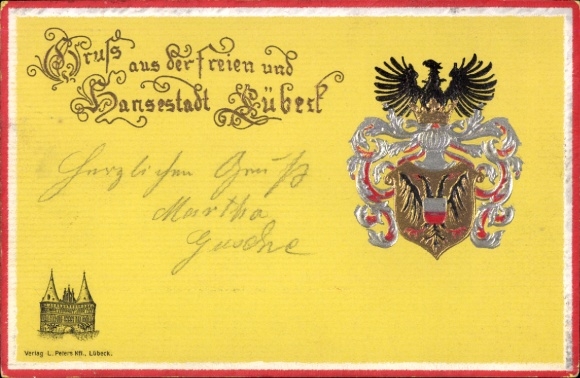 Gruss aus der freien und
Hansestadt Lübeck
Herzlichen Gruß
Martha
Verlag L. Peters Nfl., Lübeck.